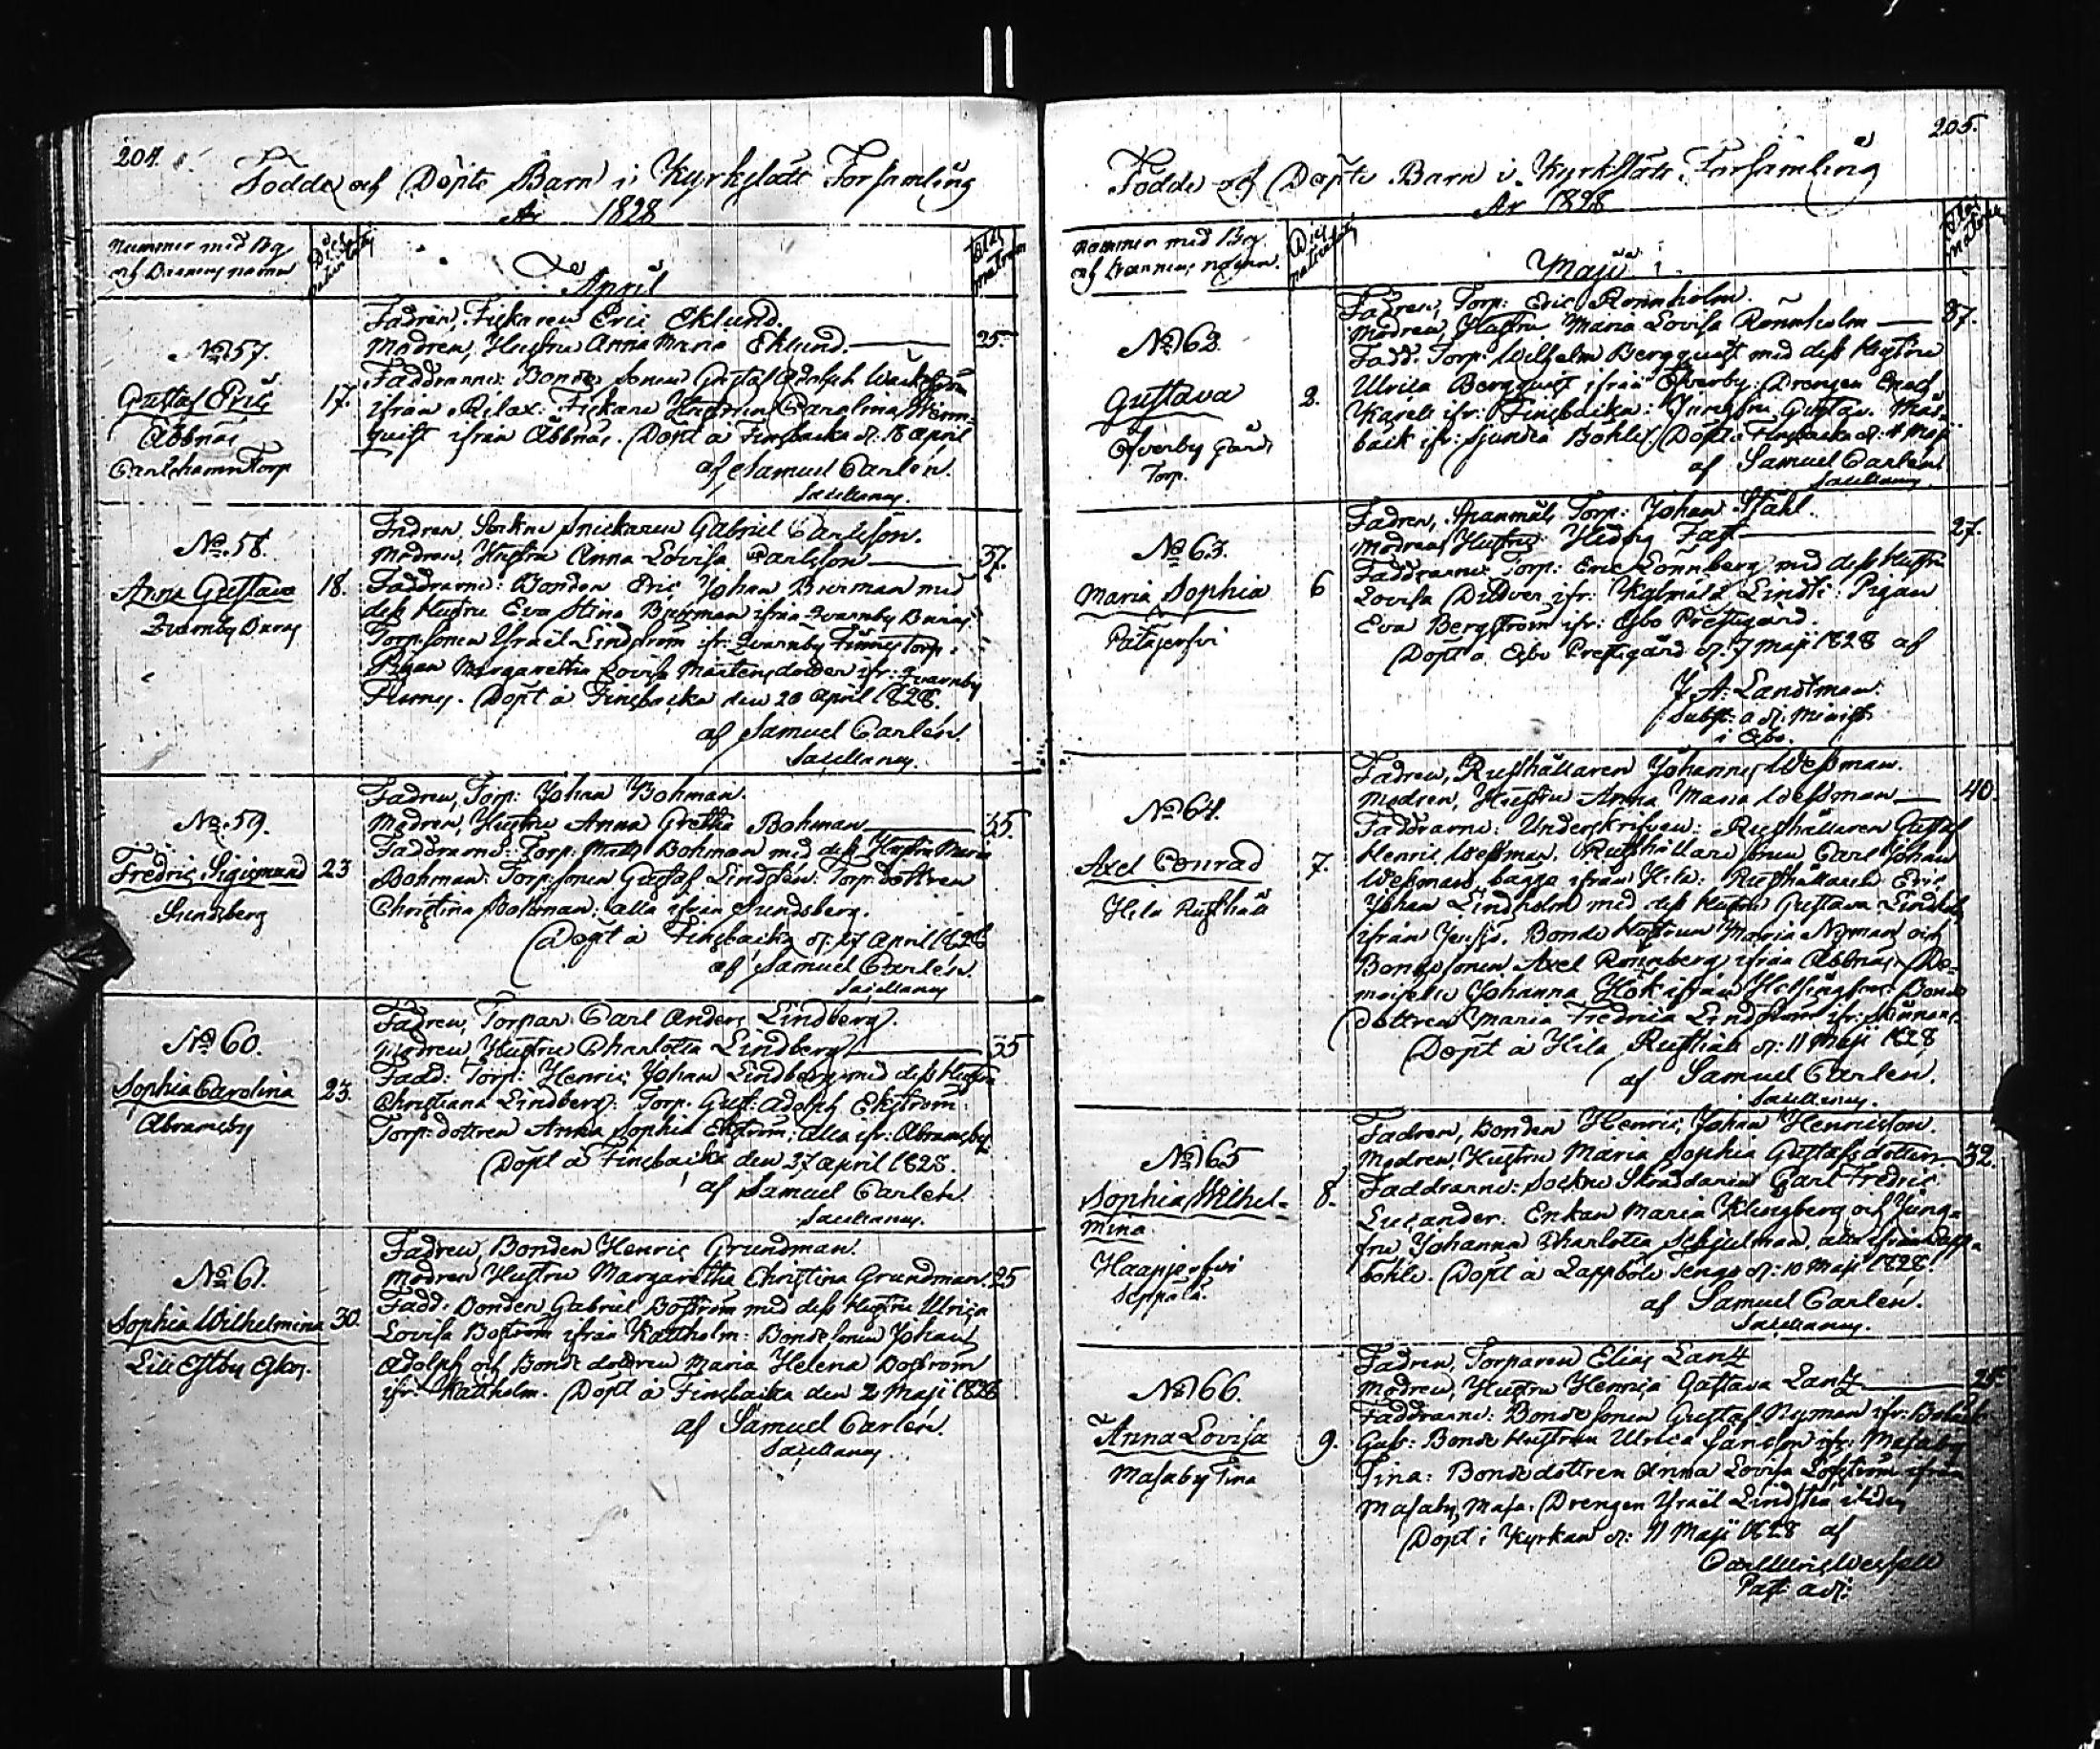 204.
Födde och Döpte Barn i Kyrkslätt Församling
År 1828
Nummer med Byg
och Barnens namn
Dies
April
Ætas
matrum
No 57.
Gustaf Eric
Åbbnäs
Carlshamn Torp
17.
Fadren, Fiskaren Eric Eklund.
Modren, Hustru Anna Maria Eklund. 25.
Faddrarne: Bonde sonen Gustaf Adolph
ifrån Rilax: Fiskare Hustrun Carolina Wenn-
quist ifrån Åbbnäs. Döpt å Finsbacka d: 18 April
af Samuel Carlén.
Sacellanus.
No 58.
Anna Gustava
Qvarnby Buras
18.
Fadren, Sockne Snickaren Gabriel Carlsson.
Modren, Hustru Anna Lovisa Carlsson 37.
Faddrarne: Bonden Eric Johan Burman med
dess Hustru Eva Stina Burman ifrån Qvarnby Buras
Torp: sonen Israel Lindström ifr: Qvarnby Finnes Torp:
Pigan Margaretha Lovisa Mårtens dotter ifr: Qvarnby
Döpt å Finsbacka den 20 April 1828.
af Samuel Carlén.
Sacellanus.
No 59.
Fredric Sigismund
Sundsberg
23
Fadren, Torp: Johan Bohman.
Modren, Hustru Anna Gretha Bohman 35.
Faddrarne: Torp: Matts Bohman med dess Hustru Maria
Bohman: Torp: sonen Gustaf Lindsten: Torp: dottren
Christina Bohman: alla ifrån Sundsberg.
Döpt å Finsbacka d: 27 April 1828
af Samuel Carlén.
Sacellanus
No 60.
Sophia Carolina
Abramsby
23.
Fadren, Torpar. Carl Anders Lindberg.
Modren Hustru Charlotta Lindberg 35
Fadd: Torp: Henric Johan Lindberg med dess Hustru
Christiana Lindberg: Torp. Gust: Adolph Ekström:
Torp: dottren Anna Sophia Ekström: alla ifr: Abramsby
Döpt å Finsbacka den 27 April 1828.
af Samuel Carlén.
Sacellanus.
No 61.
Sophia Wilhelmina
Lill Estby Eskos.
30.
Fadren, Bonden Henric Grundman.
Modren Hustru Margaretha Christina Grundman. 25
Fadd: Bonden Gabriel Boström med dess Hustru Ulrica
Lovisa Boström ifrån Kattholm: Bonde sonen Johan
Adolph och Bonde dottren Maria Helena Boström
ifr: Kattholm. Döpt å Finsbacka den 2 Maji 1828
af Samuel Carlén.
Sacellanus.
205.
Födde och Döpte Barn i Kyrkslätt Församling
År 1828
Nummer med Byg
och Barnens namn.
Dies
Maji
Ætas
No 62.
Gustava
Öfverby Gård
Torp.
2.
Fadren, Torp: Eric Rönnholm.
Modren, Hustru Maria Lovisa Rönnholm 37.
Fadd. Torp: Wilhelm Bergquist med dess Hustru
Ulrica Bergquist ifrån Öfverby: Drengen Enoch
ifr: Finsbacka: Jungfru Gustav.
back ifr: Sjundeå Böhle. Döpt å Finsbacka d: 4 Maji
af Samuel Carlén
Sacellanus.
No 63.
Maria Sophia
Pitäjerfvi
6
Fadren, Torp: Johan Ståhl.
Modren, Hustru Hedvig Fast 27.
Faddrarne Torp: Eric Lönnberg med dess Hustru
Lovisa ifr: Lindti: Pigan
Eva Bergström ifr: Esbo Prestgård.
Döpt å Esbo Prestgård d: 7 Maji 1828 af
J A: Landtman.
Subst: a d: Minist:
i Esbo.
No 64.
Axel Conrad
Hila Rusthåll
7.
Fadren, Rusthållaren Johannes Wessman.
Modren, Hustru Anna Maria Wessman 40.
Faddrarne: Underskrifven: Rusthållaren Gustaf
Henric Wessman, Rusthållare sonen Carl Johan
Wessman, bägge ifrån Hila: Rusthållaren Eric
Johan Lindholm med dess Hustru Gustava Lindholm
ifrån Jensjö. Bonde Hustrun Maria Nyman och
Bonde sonen Axel Rönnberg ifrån Åbbnäs. De-
moiselle Johanna Hök ifrån Helsingfors: Bonde
dottren Maria Fredrica Lindström ifr:
Döpt å Hila Rusthåll d: 11 Maji 1828,
af Samuel Carlén.
Sacellanus.
No 65
Sophia Wilhel-
mina
Haapjerfvi
Seppälä.
8.
Fadren, Bonden Henric Johan Henricsson.
Modren, Hustru Maria Sophia Gustafsdotter. 32.
Faddrarne: Sockne Skräddaren Carl Fredric
Lucander. Enkan Maria Klingberg och Jung-
fru Johanna Charlotta alla ifrån Lapp-
böhle. Döpt å Lappböle d: 10 Maji 1828.
af Samuel Carlén.
Sacellanus.
No 66.
Anna Lovisa
Masaby Tina
9.
Fadren, Torparen Elias Lantz
Modren, Hustru Henrica Gustava Lantz 25
Faddrarne: Bonde sonen Gustaf Nyman ifr:
Bonde Hustrun Ulrica ifr: Masaby
Tina: Bonde dottren Anna Lovisa Löfström ifrån
Masaby Masa: Drengen Israël Lindsten
Döpt i Kyrkan d: 11 Maji 1828 af
Past: adj: